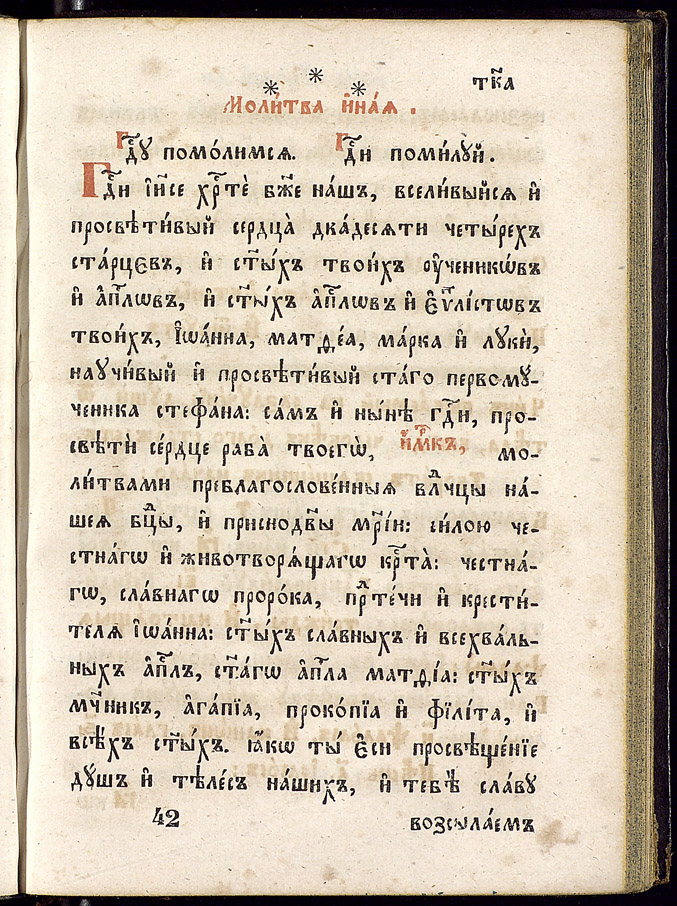 тк҃а
* * *
Моли́тва и҆на́ѧ .
Гдⷭ҇у помо́лимсѧ. Гдⷭ҇и поми́луй.
Гдⷭ҇и і҆и҃се хрⷭ҇тѐ бж҃е на́шъ, всели́выйсѧ и҆
просвѣти́вый сердца̀ дка́десѧти четы́рехъ
ста́рцєвъ, и҆ ст҃ы́хъ твои́хъ ѹ҆ченикѡ́въ
и҆ а҆пⷭ҇лѡвъ, и҆ ст҃ы́хъ а҆пⷭ҇лѡвъ и҆ є҆ѵⷢ҇лі́стѡвъ
твои́хъ, І҆ѡа́нна, матѳе́а, ма́рка и҆ лукѝ,
научи́вый и҆ просвѣти́вый ст҃а́го первому́-
ченика стефа́на: са́мъ и҆ ны́нѣ гдⷭ҇и, про-
свѣтѝ се́рдце раба̀ твоегѡ̀, и҆́м̾къ, мо-
ли́твами преблагослове́нныѧ влⷣчцы на́-
шеѧ бцⷣы, и҆ приснодв҃ы мр҃і́и: си́лою че-
стна́гѡ и҆ животворѧ́щагѡ крⷭ҇та̀: честна́-
гѡ, сла́внагѡ проро́ка, прⷣте́чи и҆ крести́-
телѧ і҆ѡа́нна: ст҃ы́хъ сла́вныхъ и҆ всехва́ль-
ныхъ а҆пⷭ҇лъ, ст҃а́гѡ а҆пⷭ҇ла матѳі́а: ст҃ы́хъ
мч҃никъ, а҆га́пїа, проко́пїа и҆ фїлі́та, и҆
всѣ́хъ ст҃ы́хъ. ꙗ҆́кѡ ты̀ є҆сѝ просвѣще́нїе
ду́шъ и҆ тѣле́съ на́шихъ, и҆ тебѣ̀ сла́ву
42 возсыла́емъ